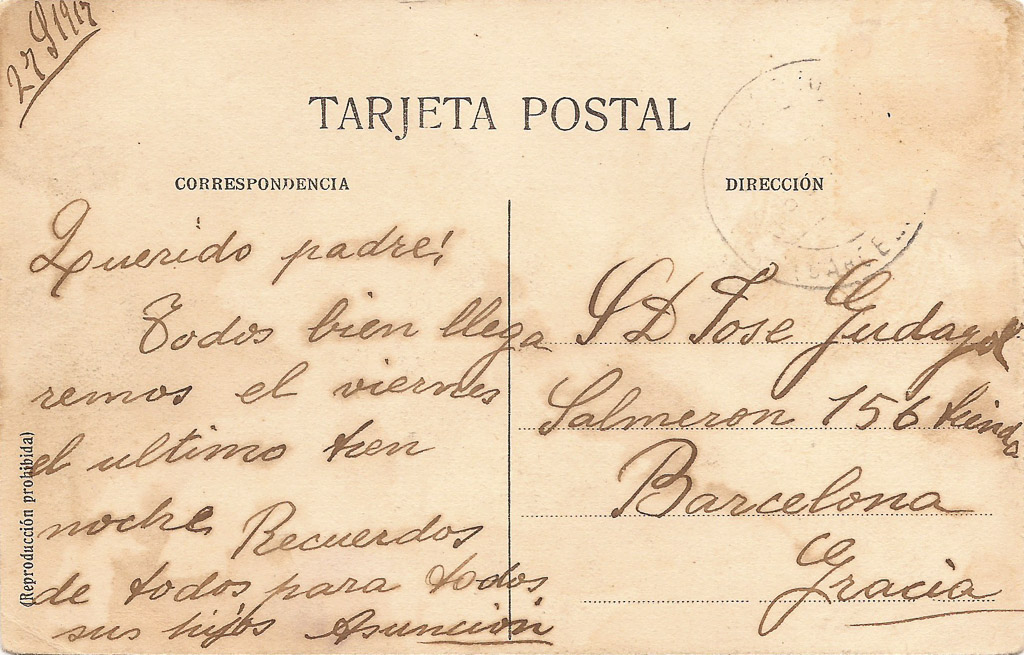 27 9 1917
TARJETA POSTAL
CORRESPONDENCIA
Querido padre!
Todos bien llega
remos el viernes
el ultimo tren
noche Recuerdos
de todos para todos,
sus hijos Asunción
(Reproducción prohibida)
DIRECCIÓN
S D Jose Gudayol
Salmeron 156 tienda
Barcelona
Gracia